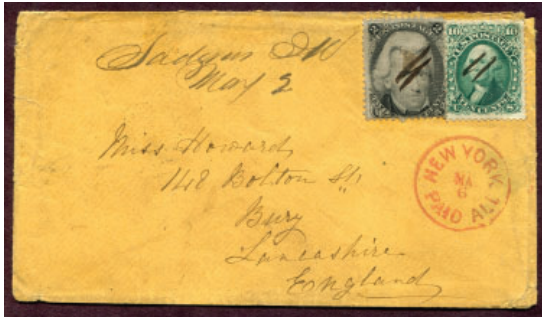 May 2
2 2
10 10
Miss Howard
148 Bolton St.
Bury
Lancashire
England
NEW YORK
MA
6
PAID ALL